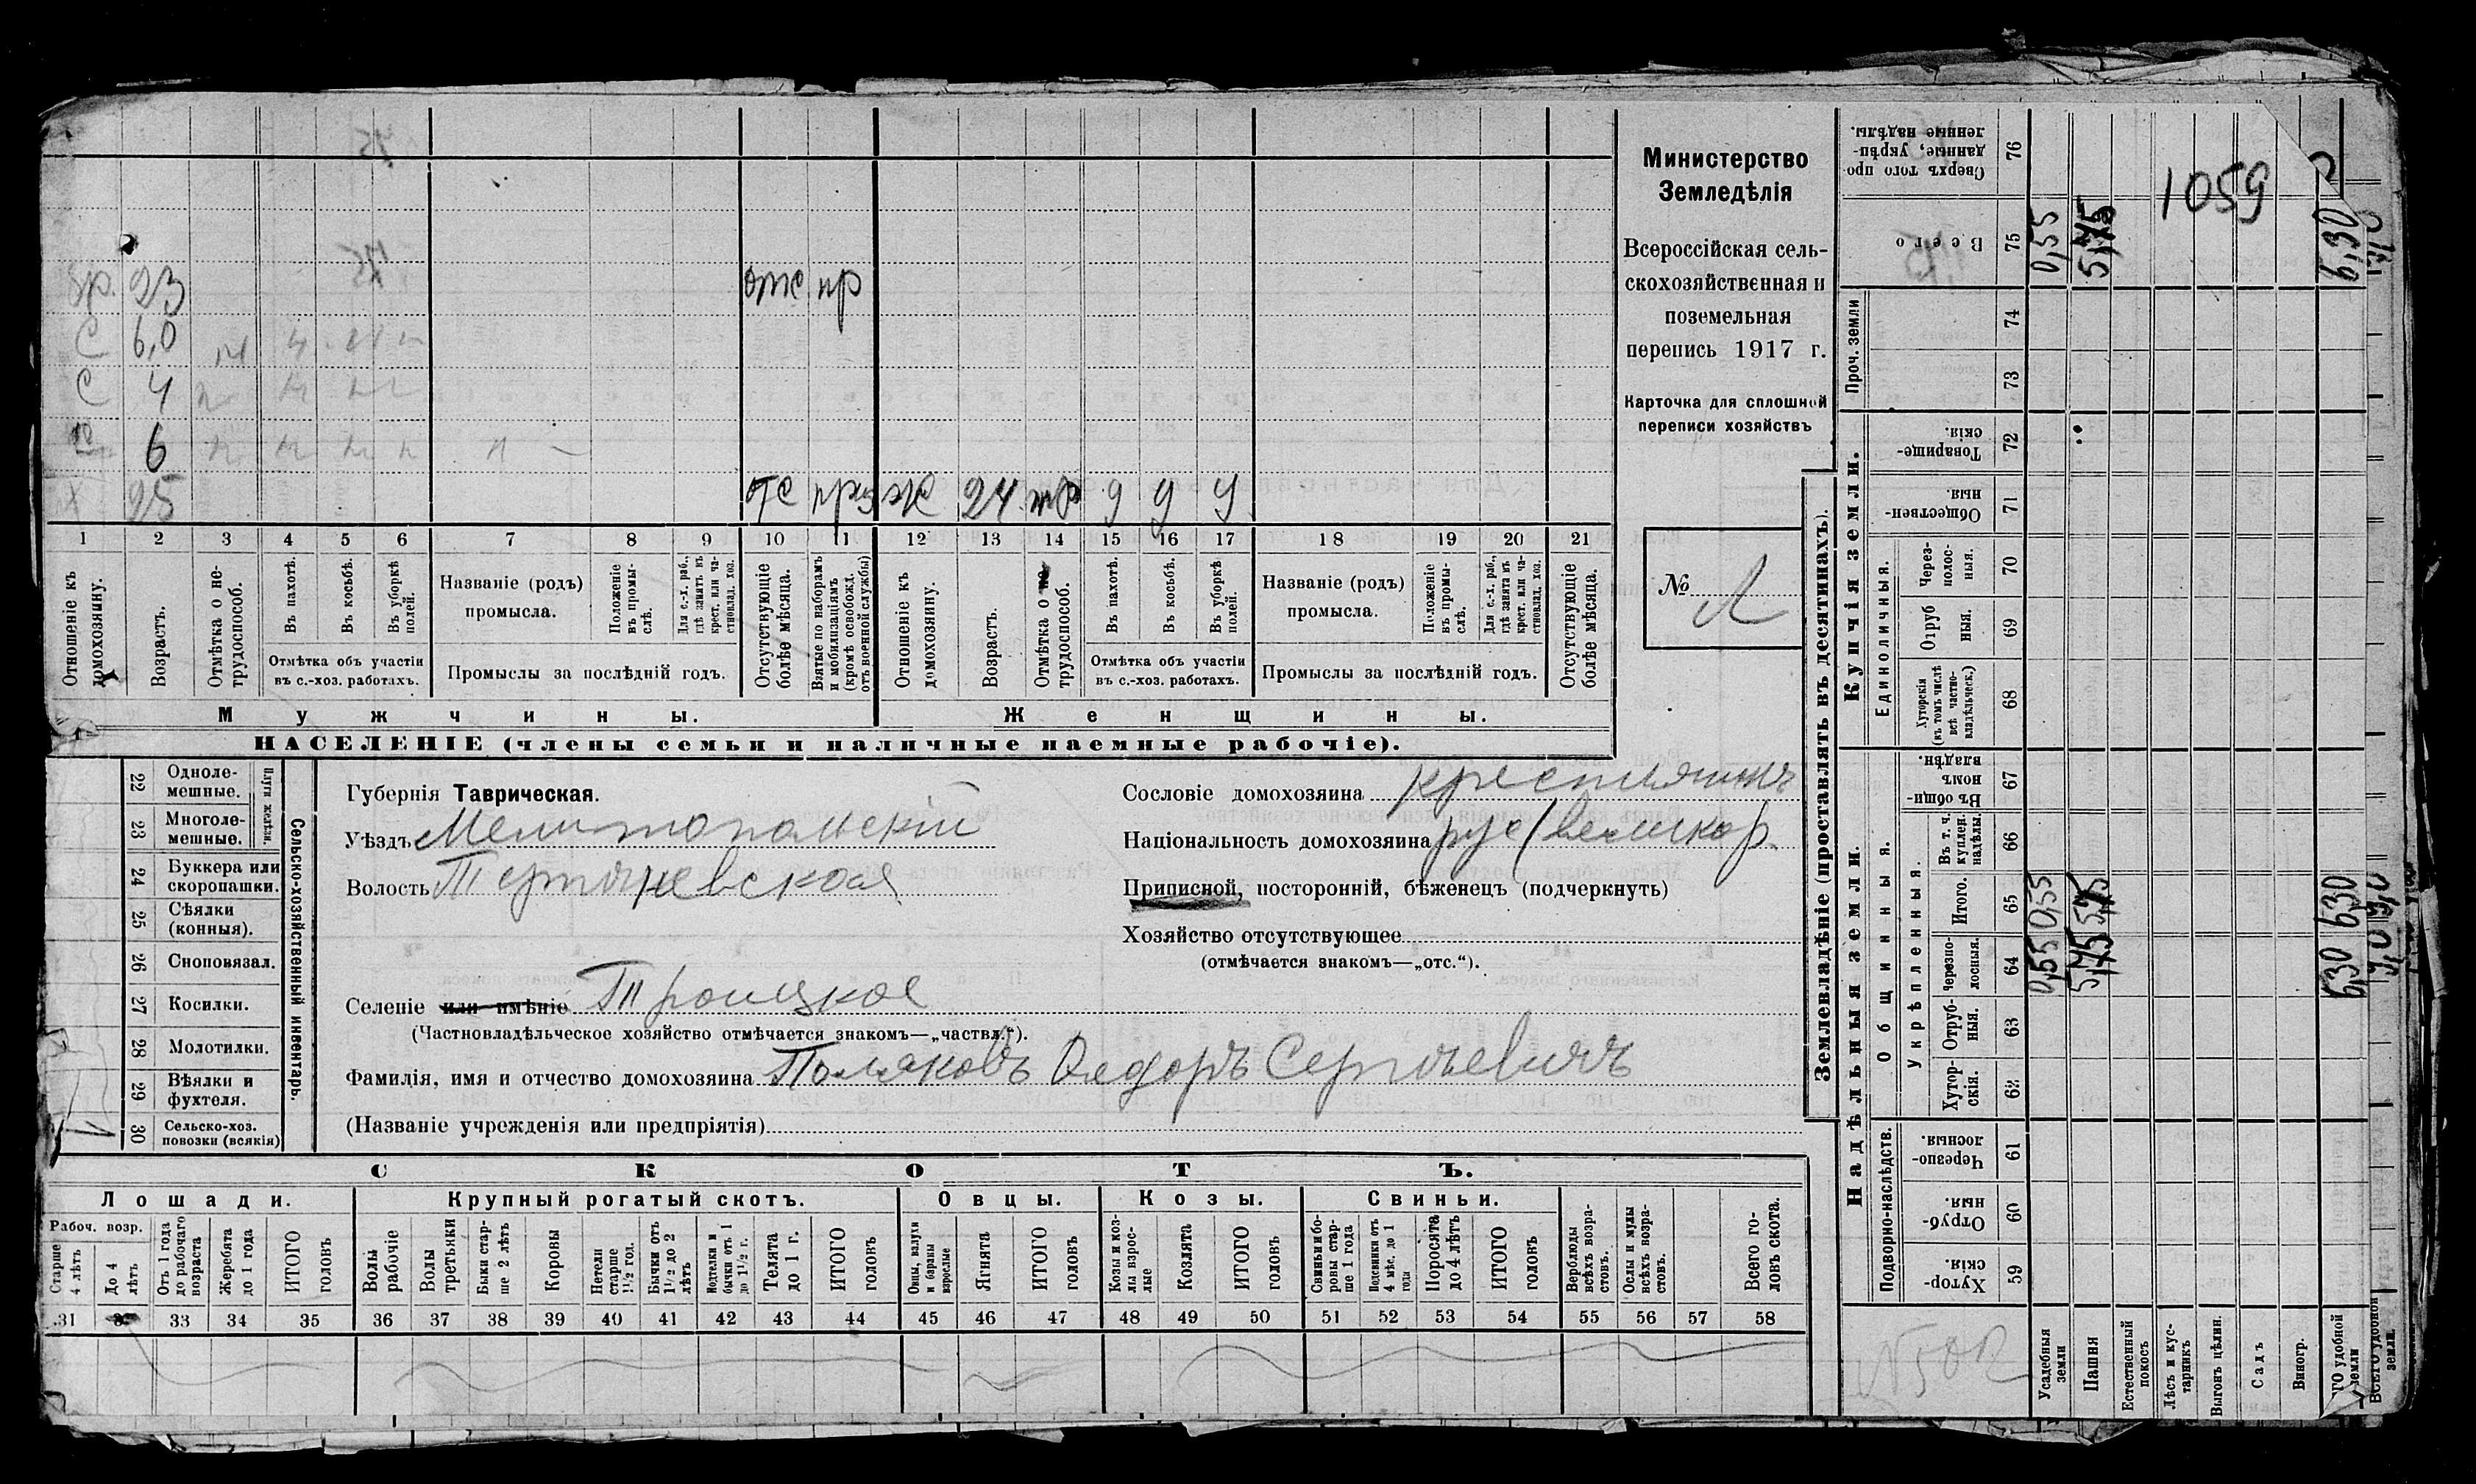 Министерство
Земледѣлія
Всероссійская сель-
скохозяйственная и
поземельная
перепись 1917 г.
Карточка для сплошной
переписи хозяйствъ
№ Л
1059
бр. 23 отс. пр
С 6,0
С 4
6
Х 25 отс прз Ж 24 9 9 9
1 2 3 4 5 6 7 8 9 10 11 12 13 14 15 16 17 18 19 20 21
Отношеніе къ домохозяину.
Возрастъ.
Отмѣтка о не-трудоспособ.
Въ пахотѣ.
Въ косьбѣ.
Въ уборкѣ полей.
Отмѣтка объ участіи
въ с.-хоз. работахъ.
Названіе (родъ)
промысла.
Положеніе въ промы-слѣ.
Для с.-х. раб., гдѣ занятъ въ крест. или ча-стновлад. хоз.
Промыслы за послѣдній годъ.
Отсутствующіе болѣе мѣсяца.
Взятые по наборамъ и мобилизаціямъ (кромѣ освобожд. отъ военной службы)
Отношеніе къ домохозяину.
Возрастъ.
Отмѣтка о не-трудоспособ.
Въ пахотѣ.
Въ косьбѣ.
Въ уборкѣ полей.
Отмѣтка объ участіи
въ с.-хоз. работахъ.
Названіе (родъ)
промысла.
Положеніе въ промы-слѣ.
Для с.-х. раб., гдѣ занята въ крест. или ча-стновлад. хоз.
Промыслы за послѣдній годъ.
Отсутствующіе болѣе мѣсяца.
Мужчины.
Женщины.
НАСЕЛЕНІЕ (члены семьи и наличные наемные рабочіе).
Сельско-хозяйственный инвентарь.
22 Одноле-мешные.
23 Многоле-мешные.
24 Буккера или скоропашки.
25 Сѣялки (конныя).
26 Сноповязал.
27 Косилки.
28 Молотилки.
29 Вѣялки и фухтеля.
30 Сельско-хоз. повозки (всякія)
Губернія Таврическая.
Уѣздъ Мелитопольскій
Волость
Селеніе или имѣніе Троицкое
(Частновладѣльческое хозяйство отмѣчается знакомъ—„частвл.“).
Фамилія, имя и отчество домохозяина Поляковъ Федоръ Сергѣевичъ
(Названіе учрежденія или предпріятія)
Сословіе домохозяина крестьянинъ
Національность домохозяина рус (великор.
Приписной, посторонній, бѣженецъ (подчеркнуть)
Хозяйство отсутствующее
(отмѣчается знакомъ—„отс.“).
СКОТЪ.
Лошади. Крупный рогатый скотъ. Овцы. Козы. Свиньи.
Рабоч. возр.
Старше 4 лѣтъ
До 4 лѣтъ
Отъ 1 года до рабочаго возраста
Жеребята до 1 года
ИТОГО головъ
Волы рабочіе
Волы третьяки
Быки стар-ше 2 лѣтъ
Коровы
Нетели старше 1½ гол.
Бычки отъ 1½ до 2 лѣтъ
Подтелки и бычки отъ 1 до 1½ г.
Телята до 1 г.
ИТОГО головъ
Овцы, валухи и бараны взрослые
Ягнята
ИТОГО головъ
Козы и коз-лы взрос-лые
Козлята
ИТОГО головъ
Свиньи бо-ровы стар-ше 1 года
Подсвинки отъ 4 мѣс. до 1 года
Поросята до 4 лѣтъ
ИТОГО головъ
Верблюды всѣхъ возра-стовъ.
Ослы и мулы всѣхъ возра-стовъ.
Всего го-ловъ скота.
31 32 33 34 35 36 37 38 39 40 41 42 43 44 45 46 47 48 49 50 51 52 53 54 55 56 57 58
Землевладѣніе (проставлять въ десятинахъ).
Надѣльныя земли.
Купчія земли.
Проч. земли
Подворно-наслѣдств.
Общинныя.
Укрѣпленныя.
Единоличныя.
Хутор-скія. 59
Отруб-ныя. 60
Черезпо-лосныя. 61
Хутор-скія. 62
Отруб-ныя. 63
Черезпо-лосныя. 64 0,55 5,75 6,30
Итого. 65 0,55 5,75 6,30
Въ т. ч. куплен. надѣлы. 66
Въ общи-номъ владѣн. 67
Хуторскія (въ томъ числѣ всѣ частно-владѣльческ.) 68
Отруб ныя. 69
Через-полос-ныя. 70
Обществен-ныя. 71
Товарище-скія. 72
73
74
Всего 75 0,55 5,75 6,30
Сверхъ того про данные, укрѣп-ленные надѣлы. 76
Усадебныя земли
Пашня
Естественный покосъ
Лѣсъ и кус-тарникъ
Выгонъ цѣлин.
Садъ
Виногр.
ВСЕГО удобной земли.